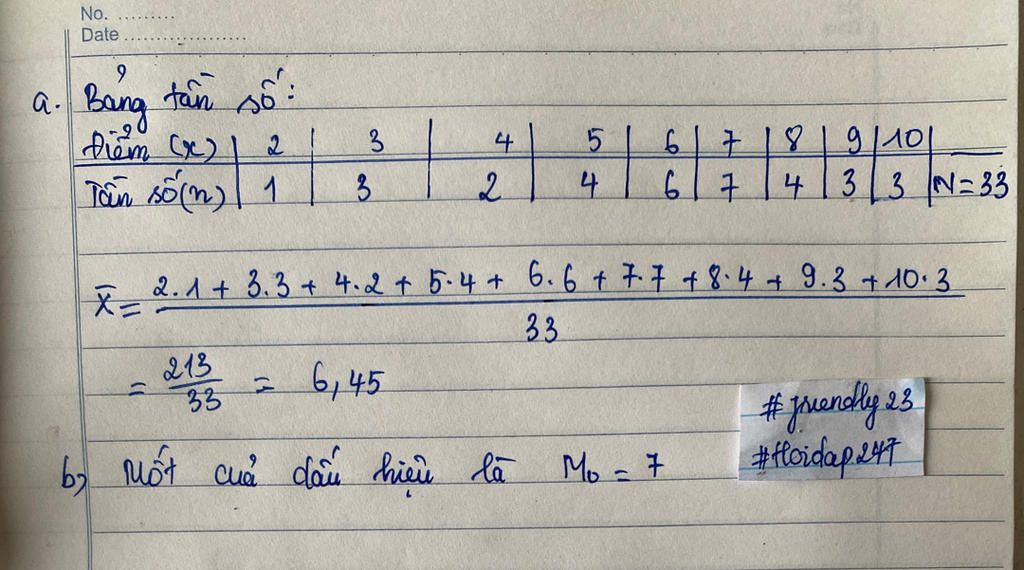 No. .........
Date ...................
a. Bảng tần số:
Điểm (x) | 2 | 3 | 4 | 5 | 6 | 7 | 8 | 9 | 10 |
Tần số (n) | 1 | 3 | 2 | 4 | 6 | 7 | 4 | 3 | 3 | N = 33
X̄ = 2.1 + 3.3 + 4.2 + 5.4 + 6.6 + 7.7 + 8.4 + 9.3 + 10.3
33
= 213/33 = 6,45
b, Mốt của dấu hiệu là M₀ = 7
#friendly23
#Hoidap247